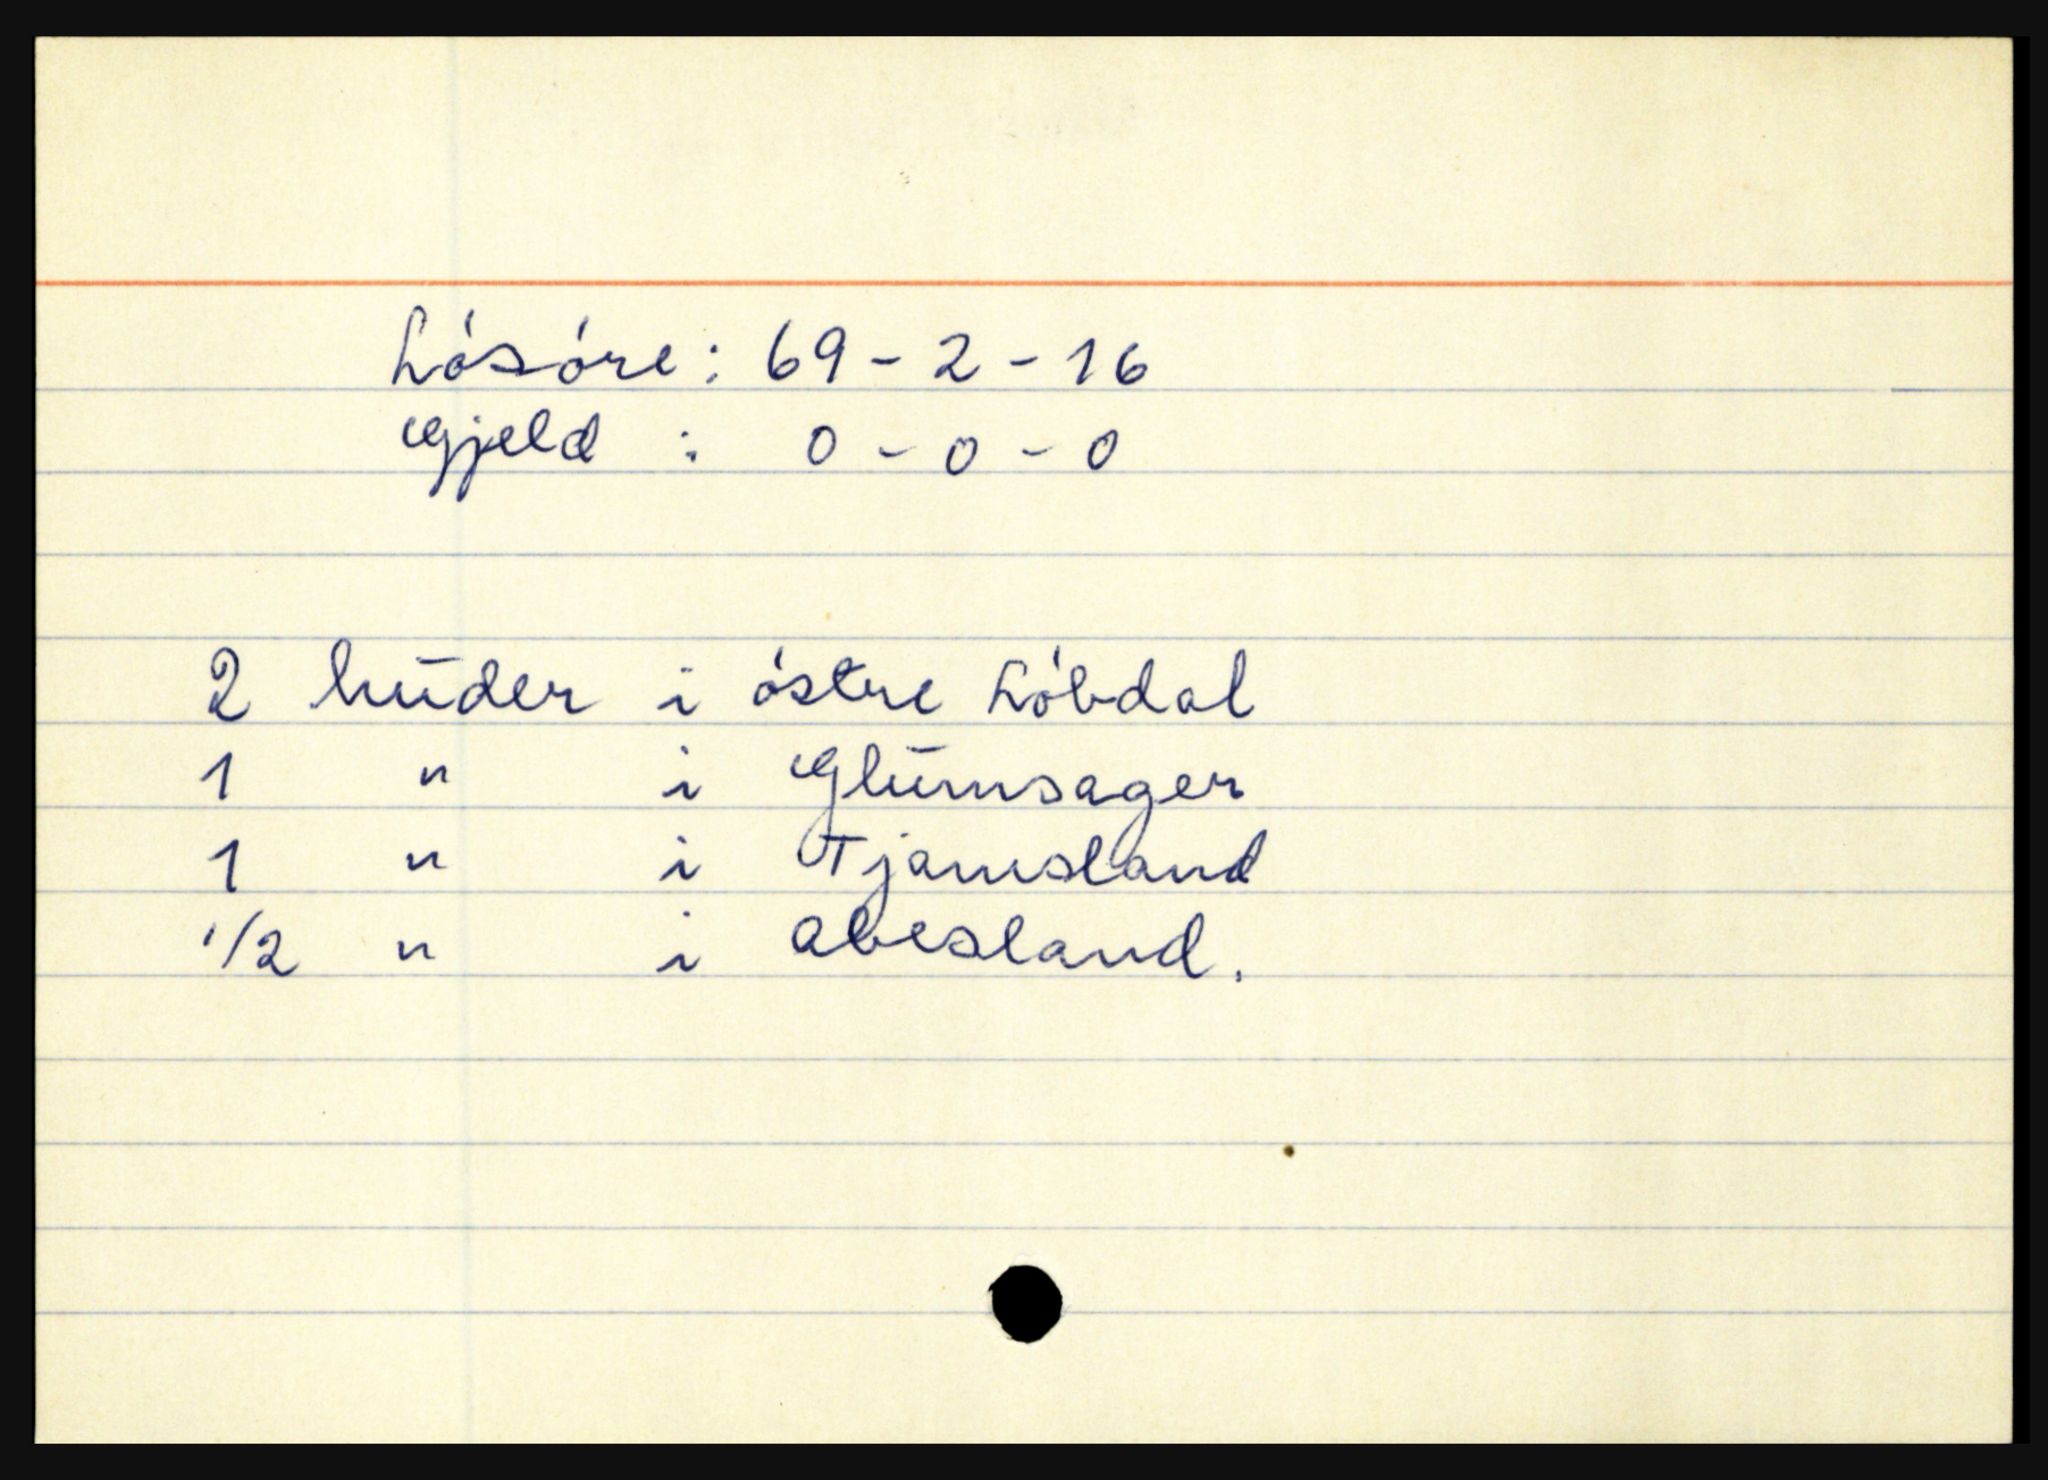 Lósóre: 69-2-16
Gjeld : 0-0-0
2 hūder i óstre Lóbdal
1 " i Glūmsager
1 " i Tjamsland
1/2 " i Abesland.